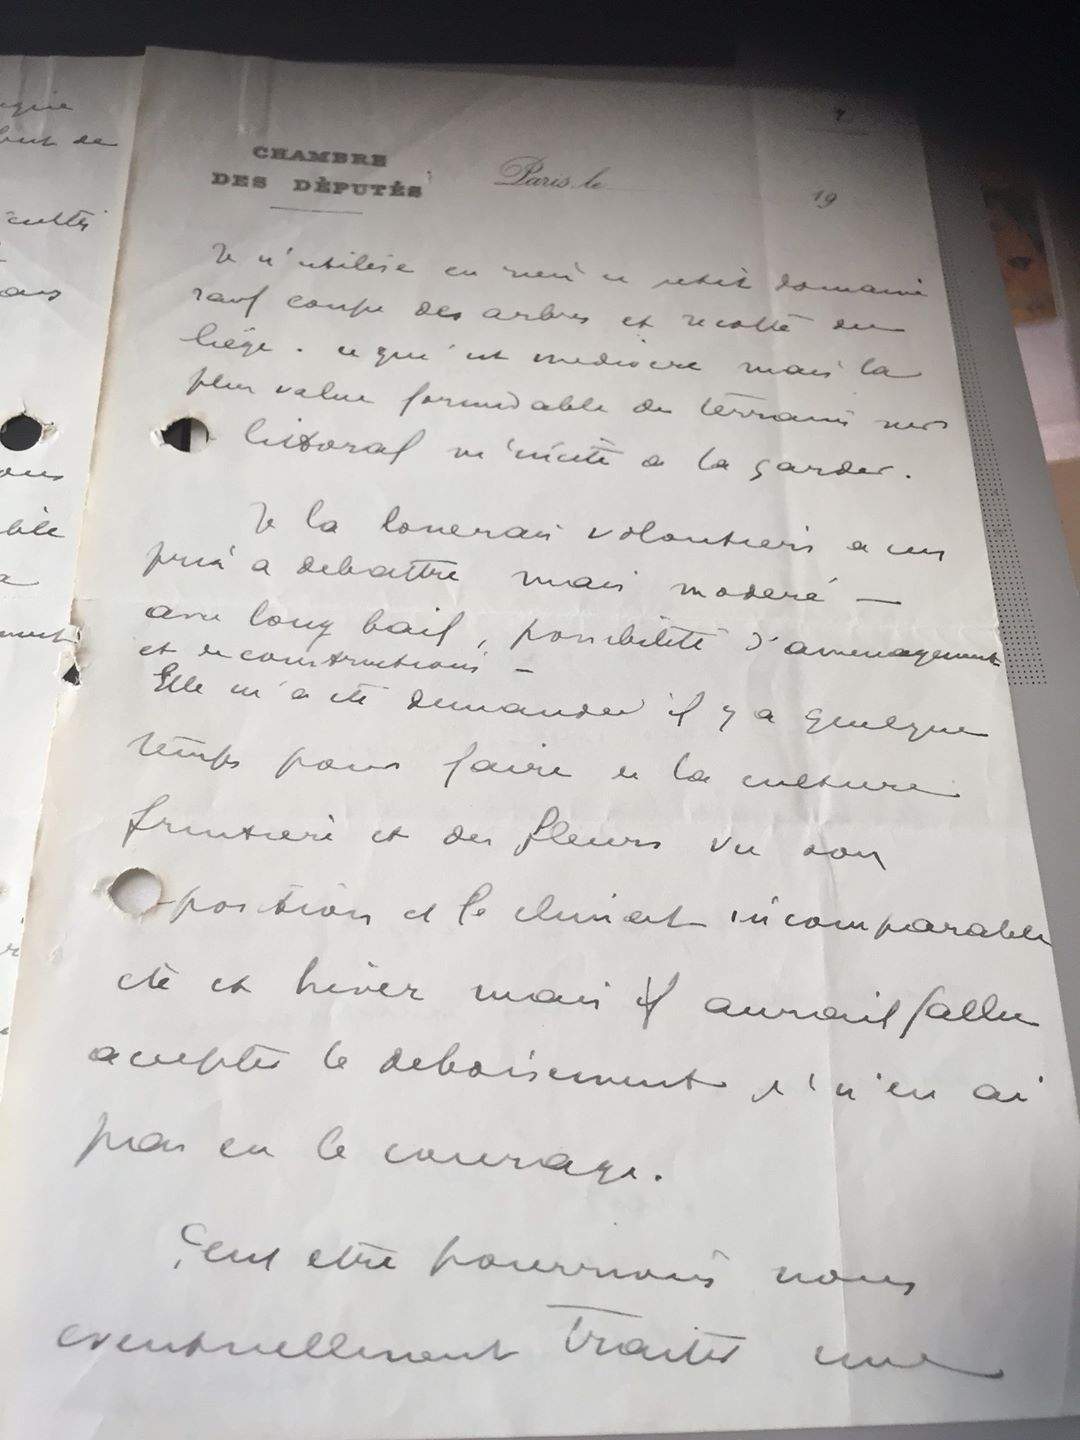 CHAMBRE
DES DÉPUTÉS
Paris, le
19
Je n'utilise en rien ce petit domaine
sauf coupe des arbres et recolte du
liège. ce qui est mediocre mais la
plus value formidable des terrains vers
littoral m'incite a la garder.
Je la louerais volontiers a un
prix a debattre mais moderé —
avec long bail, possibilité d'amenagement
et de constructions —
Elle m'a été demandée il y a quelque
temps pour faire de la culture
fruitiere et des fleurs vu son
position et le climat incomparable
eté et hiver mais il aurait fallu
accepter le deboisement je n'en ai
pas eu le courage.
Peut etre pourrions nous
eventuellement traiter une
ous